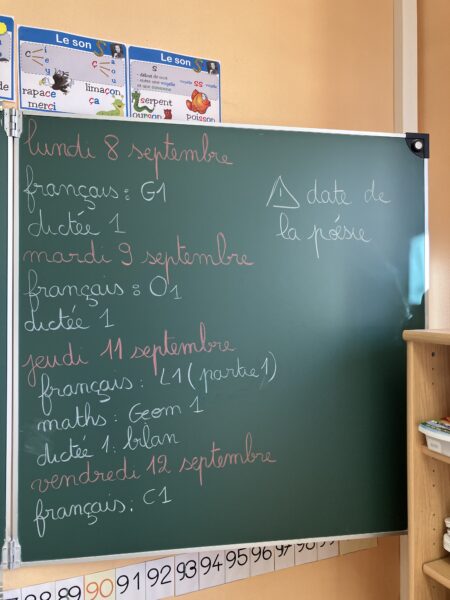 Le son
c
i
e
y
ç
a
o
u
rapace
limaçon
merci
ça
Le son S
s
ss
serpent
poisson
ourson
lundi 8 septembre
français : G1
dictée 1
mardi 9 septembre
français : O1
dictée 1
jeudi 11 septembre
français : L1 (partie 1)
maths : Geom 1
dictée 1 : bilan
vendredi 12 septembre
français : C1
⚠ date de
la poésie
88 89 90 91 92 93 94 95 96 97 98 99